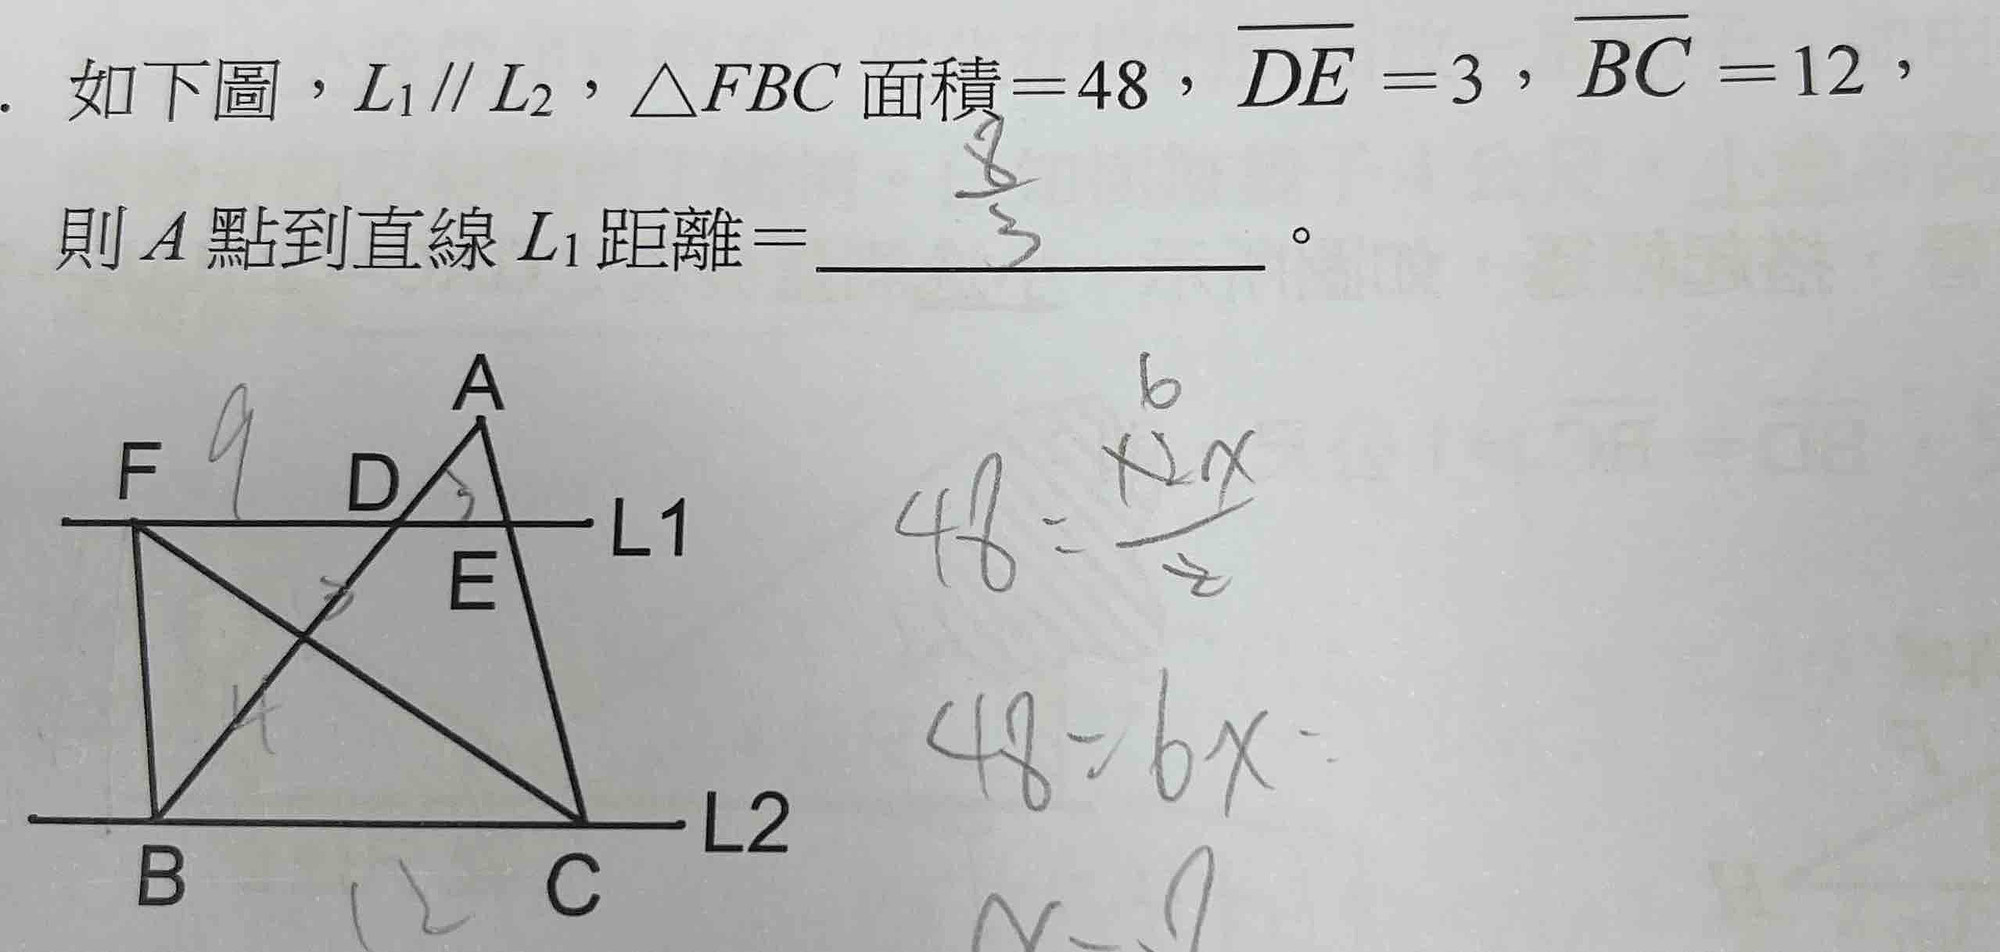 . 如下圖，L₁ // L₂，△FBC 面積＝48，DE＝3，BC＝12，
則 A 點到直線 L₁ 距離＝ 8/3 。
A
F 9 D 3
L1
E
3
4
L2
B 12 C
6
48 = 12x/2
48 = 6x =